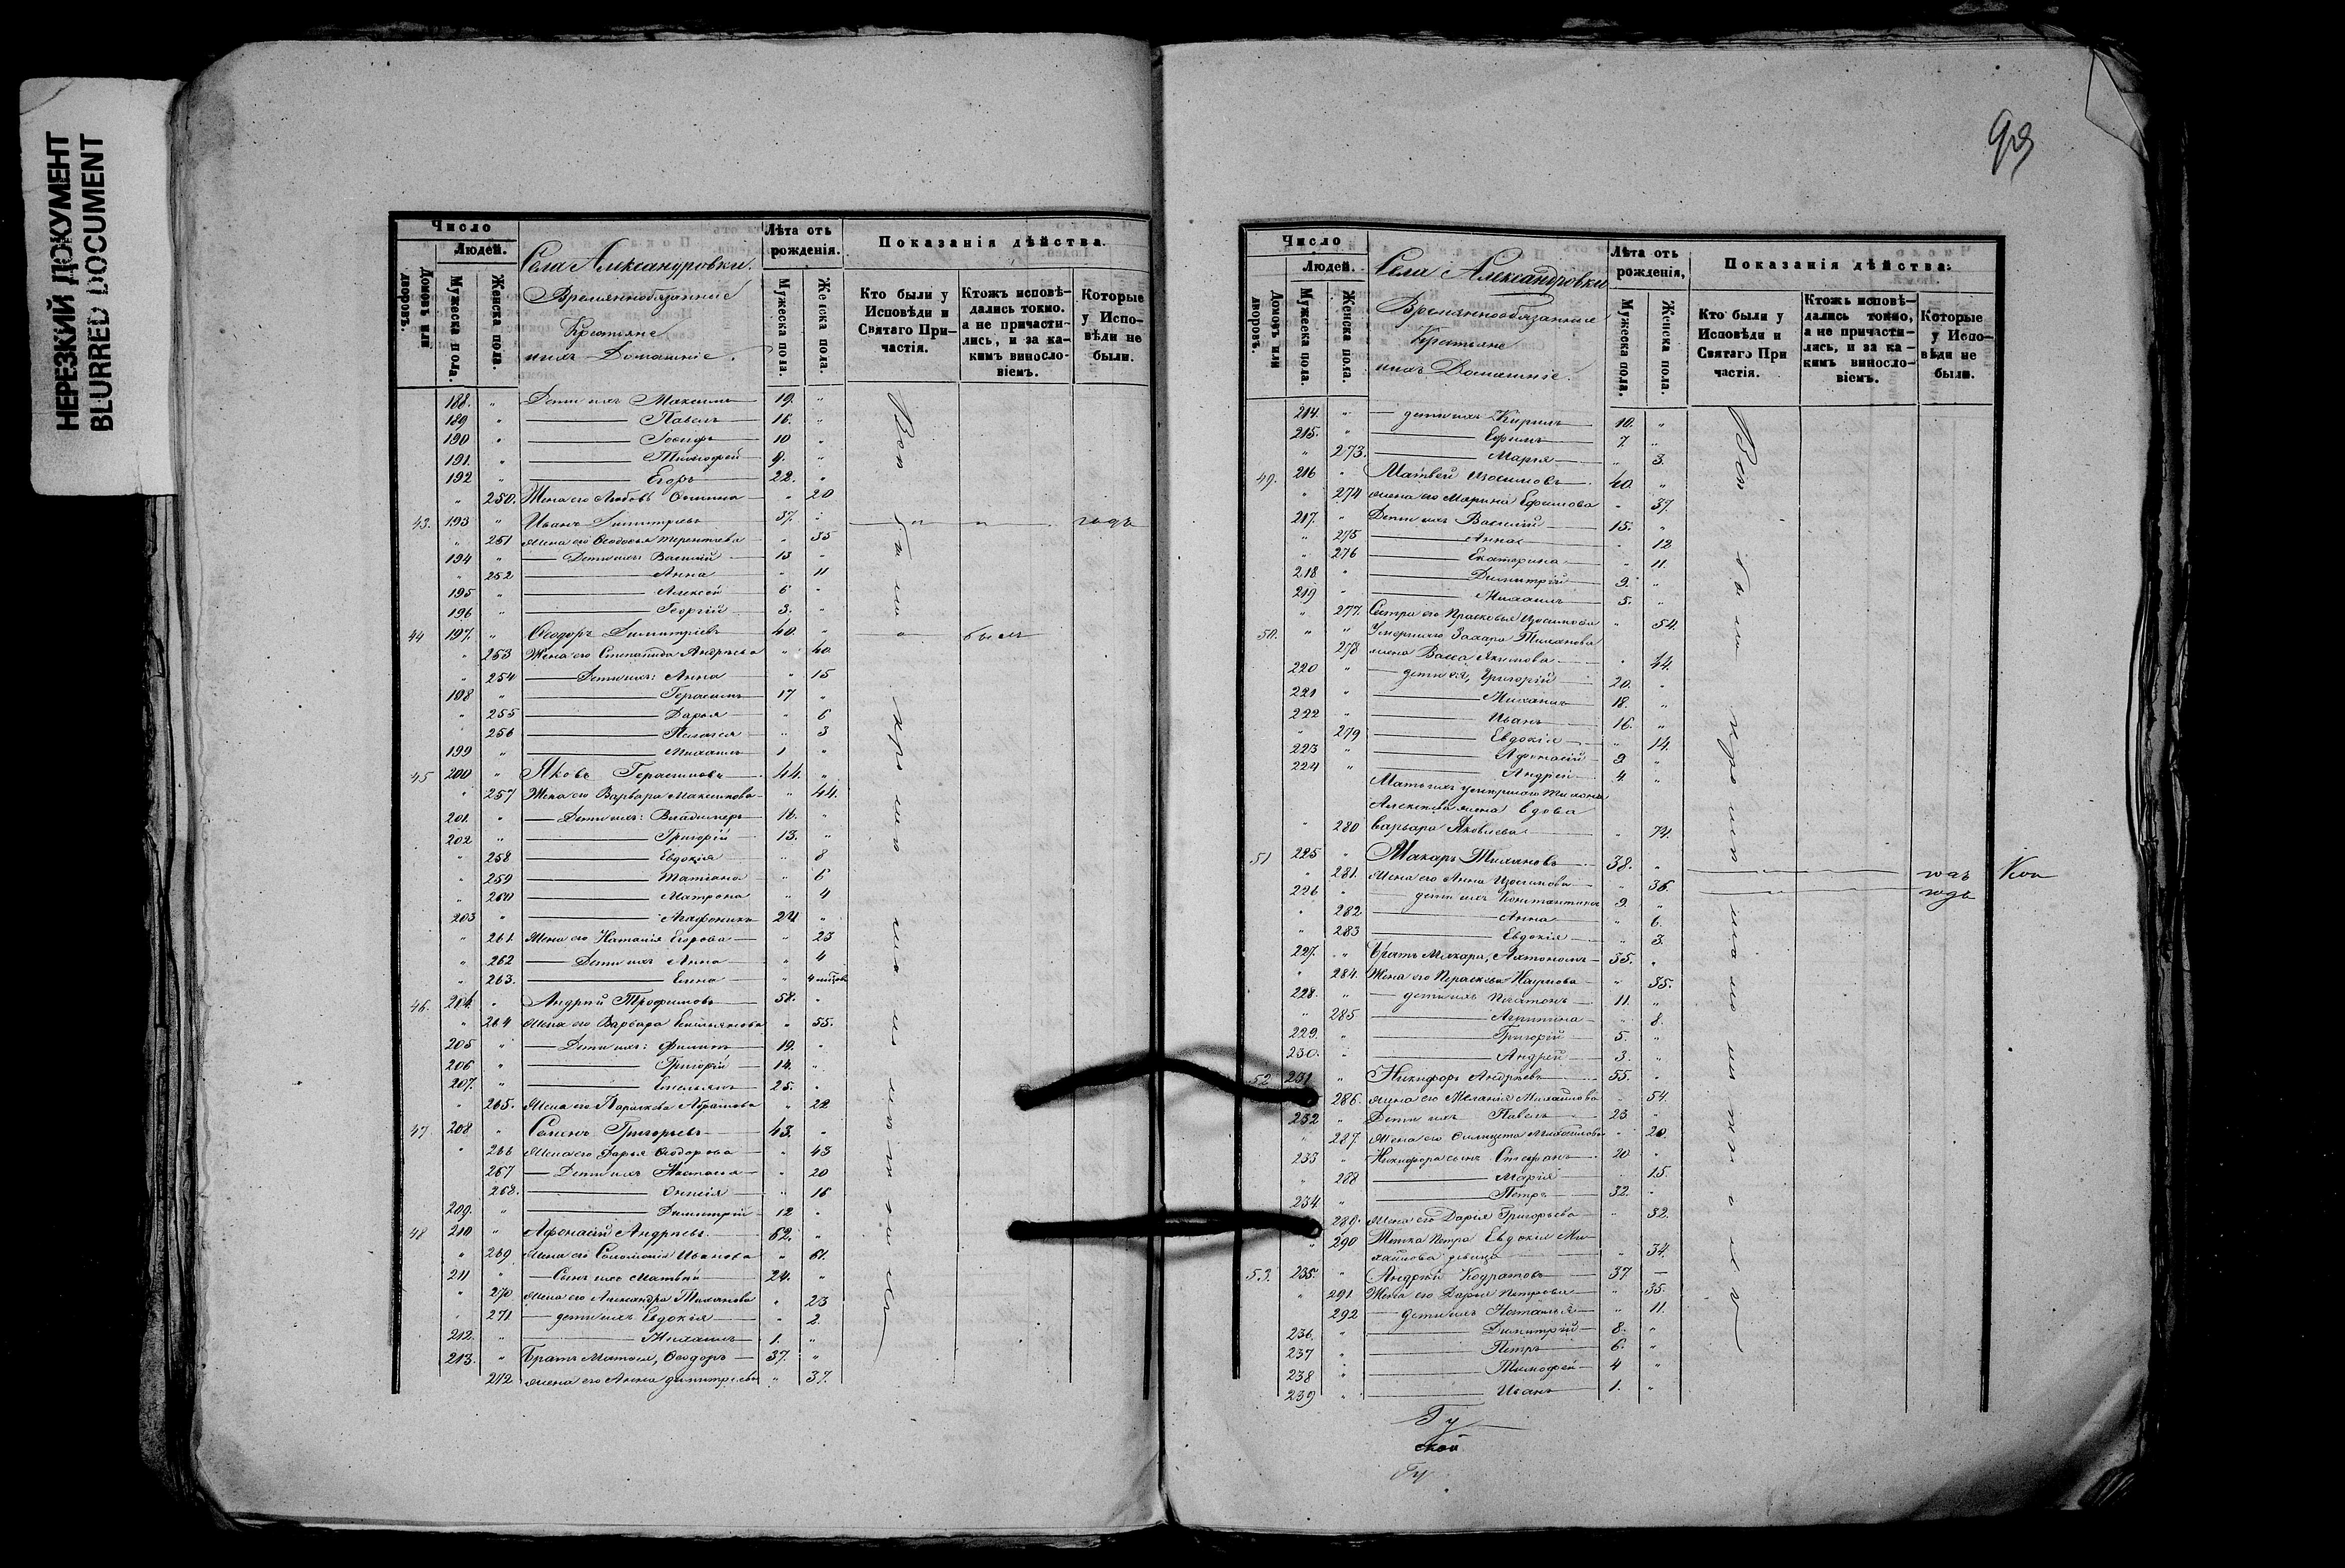 НЕРЕЗКИЙ ДОКУМЕНТ
BLURRED DOCUMENT
Число
Людей.
Домовъ или дворовъ.
Мужеска пола.
Женска пола.
Села Александровки.
Временнообязанные
Крестьяне
ихъ Домашніе.
Лѣта отъ рожденія.
Мужеска пола.
Женска пола.
Показанія дѣйства.
Кто были у Исповѣди и Святаго При-частія.
Ктожъ исповѣ-дались токмо, а не причасти-лись, и за ка-кимъ виносло-віемъ.
Которые у Испо-вѣди не были.
188. " Дети ихъ Максимъ 19. "
189 " Павелъ 16. "
190 " Іосифъ 10 "
191. " Тимофей 9. "
192 " Егоръ 22. "
" 250. Жена его Любовь " 20
43. 193 " Иванъ Димитріевъ 37. "
" 251 жена его Феодосья Терентьева " 35
194 " Дети ихъ: Василій 13 "
" 252 Анна " 11
195 " Алексей 6 "
196 " Георгій 3. "
44 197. " Феодоръ Димитріевъ 40. " былъ
" 253 Жена его Степанида Андреева " 40
" 254 Дети ихъ: Анна " 15
198 " Герасимъ 17 "
" 255 Дарья " 6
" 256 Пелагея " 3
199 " Михаилъ 1 "
45 200 " Яковъ Герасимовъ 44. "
" 257 Жена его Варвара Максимова " 44.
201. " Дети ихъ: Владимиръ 16. "
202 " Григорій 13. "
" 258 Евдокія " 8
" 259 Татіана " 6
" 260 Матрона " 4
203 " Агафоникъ 24 "
" 261. Жена его Наталія Егорова " 23
" 262 Дети ихъ Анна " 4
" 263. Елена "
46. 204. " Андрей Трофимовъ 58. "
" 264 жена его Варвара Емельянова " 55.
205 " Дети ихъ: Филипъ 19. "
206 " Григорій 14. "
207. " Емельянъ 25. "
" 265. Жена его Параскева Абрамова " 22
47. 208 " Семенъ Григорьевъ 43. "
" 266 Жена его Дарья Феодорова " 43
267 Дети ихъ Настасья " 20
268. " 16
209. " Димитрій 12 "
48 210 " Афонасій Андреевъ 62. "
" 269 жена его Соломонія Иванова " 61.
211 " Сынъ ихъ Матвей 24. "
" 270 жена его Александра Тихонова " 23
" 271 дети ихъ Евдокія " 2.
212. " Михаилъ 1. "
213. " Братъ Матвея, Феодоръ 37. "
272 жена его Анна Димитріева " 37.
Число
Людей.
Домовъ или дворовъ.
Мужеска пола.
Женска пола.
Села Александровки
Временнообязанные
Крестьяне
ихъ Домашніе.
Лѣта отъ рожденія,
Мужеска пола.
Женска пола.
Показанія дѣйства.
Кто были у Исповѣди и Святаго При частія.
Ктожъ исповѣ-дались токмо, а не причасти-лись, и за ка-кимъ виносло-віемъ.
Которые у Испо-вѣди не были.
214. " дети ихъ Кирилъ 10. "
215. " Ефимъ 7. "
" 273. Марья " 3.
49. 216 " Матвей Изосимовъ 40. "
" 274 жена его Марина Ефимова " 37.
217. " Дети ихъ Василій 15. "
" 275 Анна " 12
" 276 Екатерина " 11.
218. " Димитрій 9. "
219 " Михаилъ 5. "
" 277. Сестра его Прасковья Изосимова " 54.
50. " " Умершаго Захара Тиханова
278 жена Васса Якимова " 44.
220 " дети ея, Григорій 20. "
221 " Михаилъ 18. "
222 " Иванъ 16. "
" 279 Евдокія " 14.
223 " Афонасій 9 "
224 " Андрей 4. "
Мать ихъ умершаго Тихона
Алексеева жена вдова
" 280 Варвара Яковлева " 74.
51 225 " Макаръ Тихановъ 38. "
" 281. Жена его Анна Изосимова " 36.
226 " дети ихъ Константинъ 9. "
" 282 Анна " 6.
" 283 Евдокія " 3.
227. " Братъ Макара, Автономъ 35. "
" 284. Жена его Параскева Наумова " 35.
228. " дети ихъ Платонъ 11. "
" 285 Агрипина " 8.
229. " Григорій 5. "
230. " Андрей 3. "
52. 231 " Никифоръ Андреевъ 55. "
286. жена его Меланія Михайлова " 54.
232 " Дети ихъ Павелъ 23 "
" 287. Жена его Михайлова " 20.
233 " Никифора сынъ Стефанъ 20 "
" 288 Марія " 15.
234 " Петръ 32. "
" 289. Жена его Дарія Григорьева " 32.
" 290 Тетка Петра Евдокія Ми-
хайлова девица " 34.
53. 235. " Андрей Кодратовъ 37. —
" 291. Жена его Дарья Петрова " 35.
" 292 дети ихъ Наталья " 11.
236. " Димитрій 8. "
237 " Петръ 6. "
238 " Тимофей 4 "
239 " Иванъ 1. "
Гу
ской
Гу